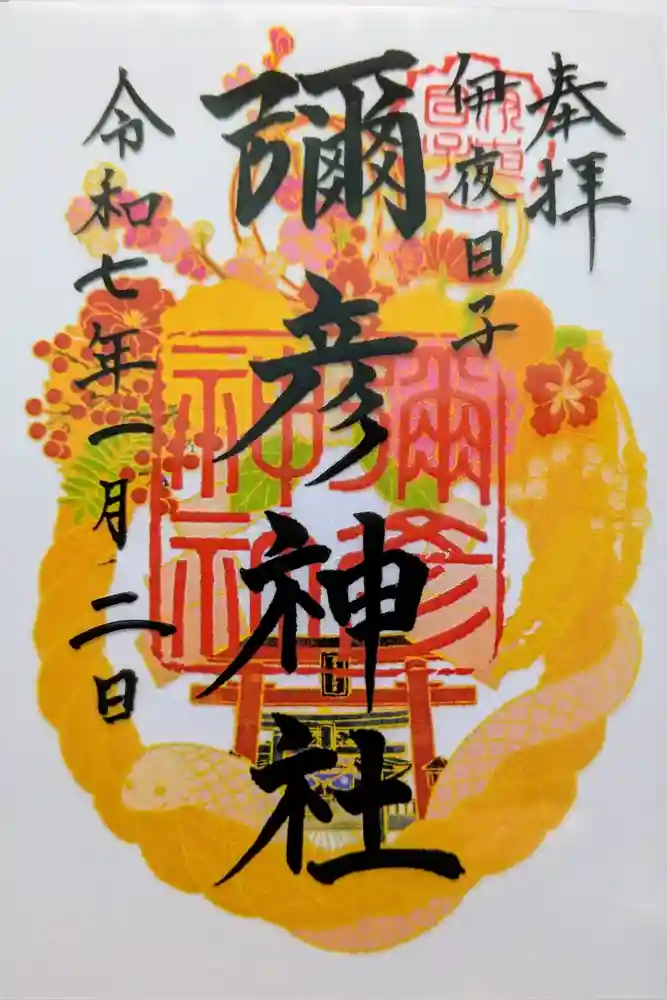 奉拝
伊夜日子
彌彦神社
令和七年一月二日